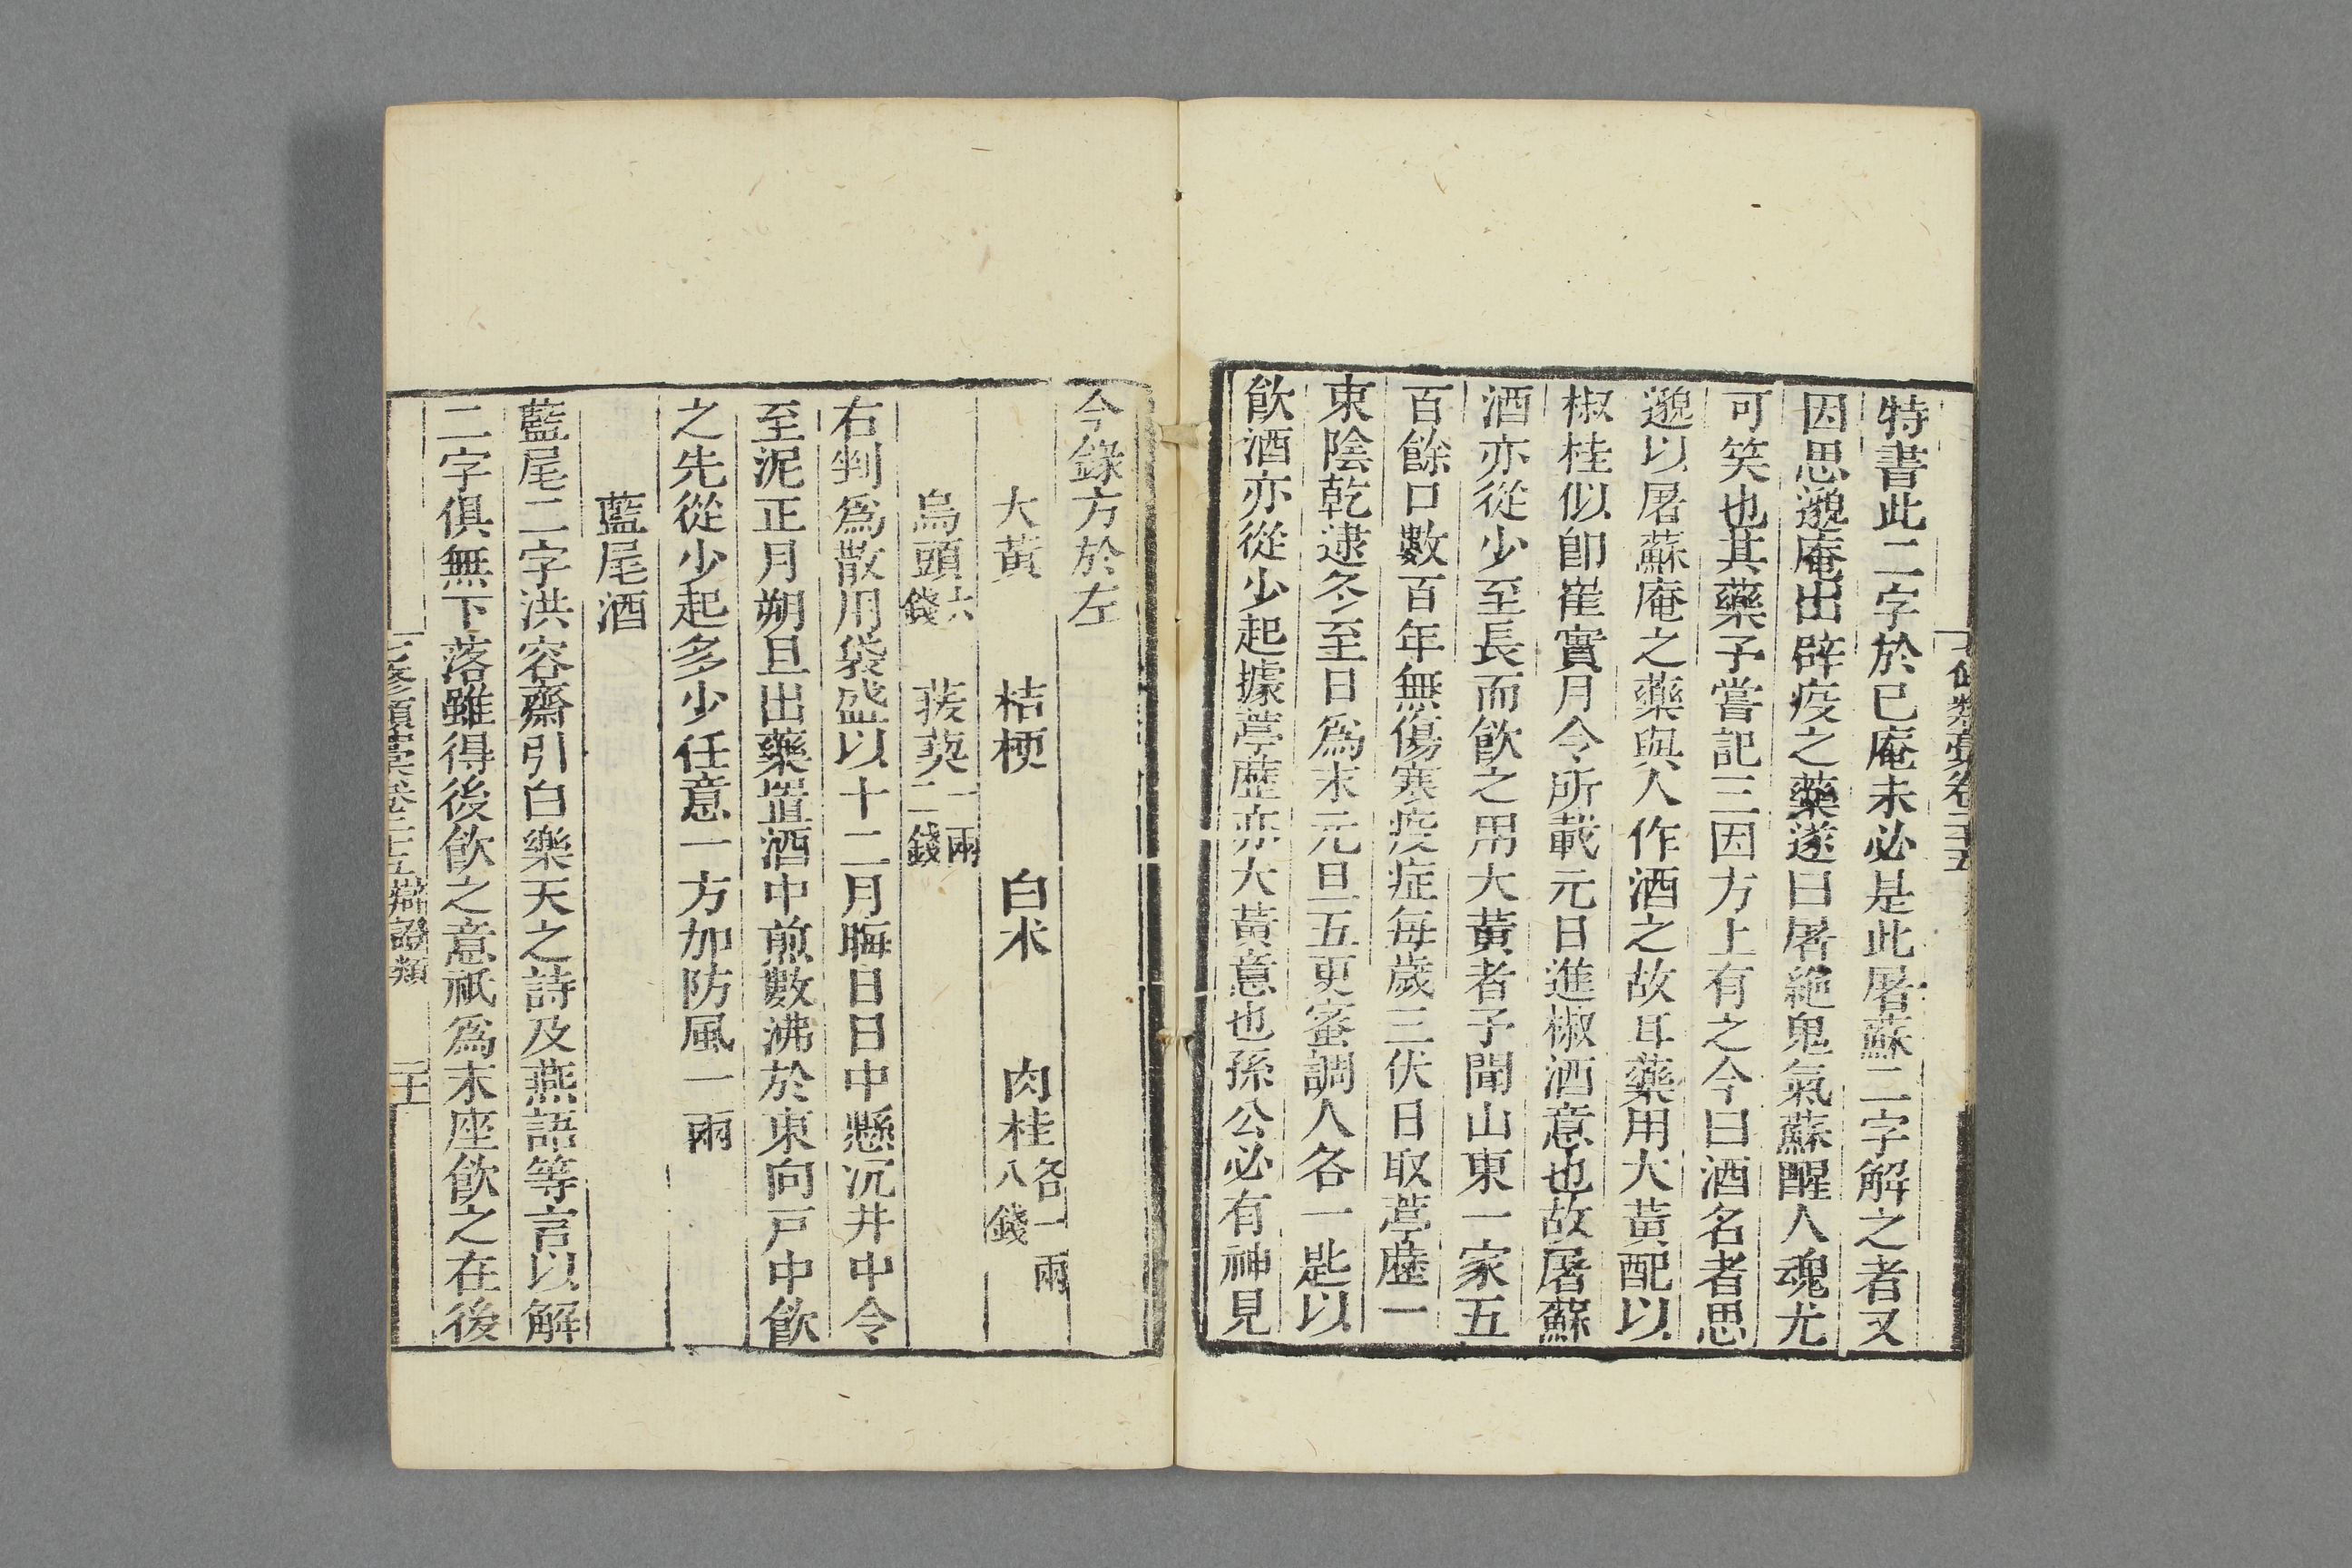 特書此二字於已庵未必是此屠蘇二字解之者又
因思邈庵出辟疫之藥遂曰屠絕鬼氣蘇醒人魂尤
可笑也其藥予嘗記三因方上有之今曰酒名者思
邈以屠蘇庵之藥與人作酒之故耳藥用大黃配以
椒桂似卽崔實月令所載元日進椒酒意也故屠蘇
酒亦從少至長而飮之用大黃者予聞山東一家五
百餘口數百年無傷寒疫症每歲三伏日取葶藶一
束陰乾逮冬至日爲末元旦五更蜜調人各一匙以
飮酒亦從少起據葶藶亦大黃意也孫公必有神見
今錄方於左
大黃 桔梗 白朮 肉桂各一兩八錢
烏頭六錢 菝葜一兩二錢
右剉爲散用袋盛以十二月晦日日中懸沉井中令
至泥正月朔旦出藥置酒中煎數沸於東向戸中飮
之先從少起多少任意一方加防風一兩
藍尾酒
藍尾二字洪容齋引白樂天之詩及燕語等言以解
二字俱無下落雖得後飮之意祇爲末座飮之在後
七修類藁卷二十五辯證類 二十